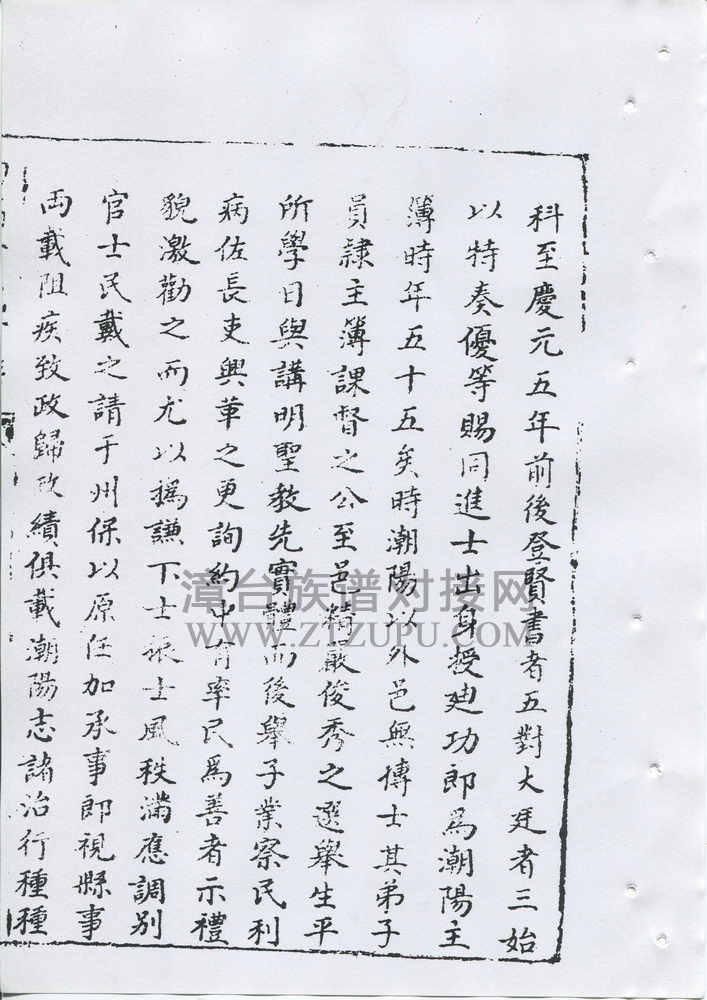 科至慶元五年前後登賢書者五對大廷者三始
以特奏優等賜同進士出身授廸功郎為潮陽主
簿時年五十五矣時潮陽以外邑無博士其弟子
員隷主簿課督之公至邑精嚴俊秀之選舉生平
所學日與講明聖教先實體而後舉子業察民利
病佐長吏興革之更詢約中有率民為善者示禮
貌激勸之而尤以撝謙下士振士風秩滿應調別
官士民戴之請于州保以原任加承事郎視縣事
両載阻疾致政歸政績俱載潮陽志諸治行種種
漳台族谱对接网
WWW.ZTZUPU.COM